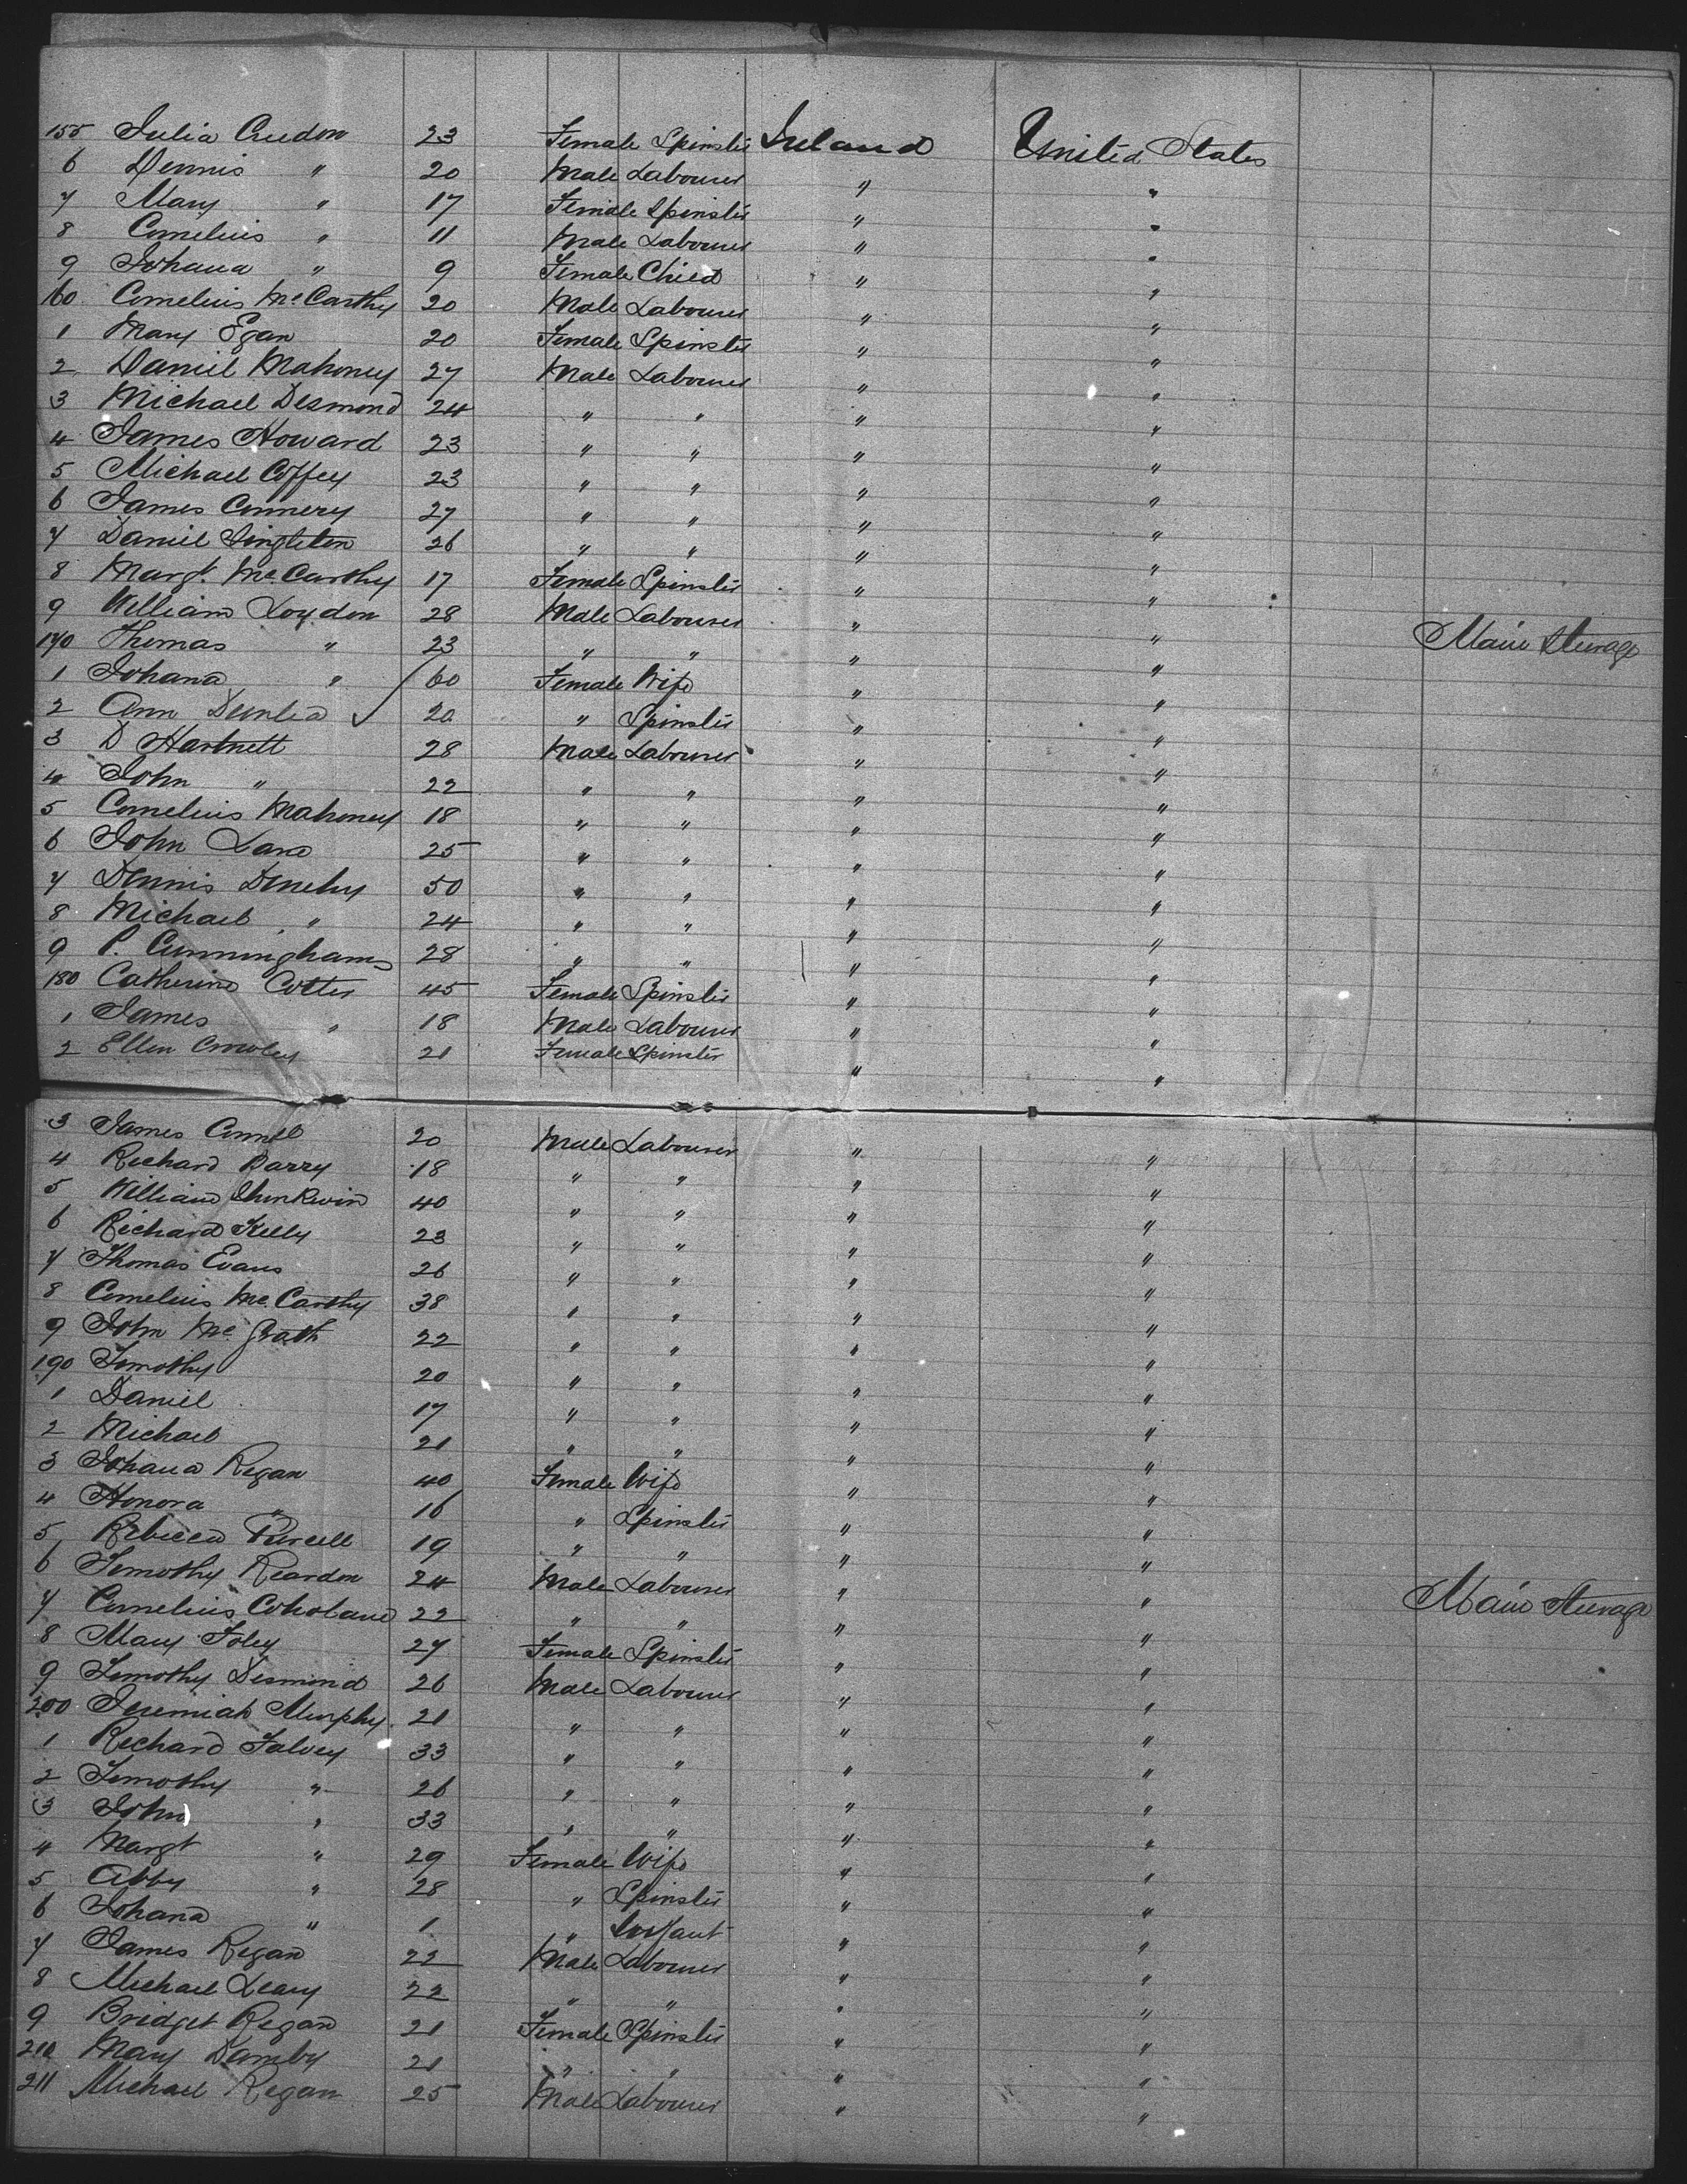 155 Julia Creedon 23 Female Spinster Ireland United States
6 Dennis " 20 Male Labourer " "
7 Mary " 17 Female Spinster " "
8 Cornelius " 11 Male Labourer " "
9 Johana " 9 Female Child " "
160 Cornelius McCarthy 20 Male Labourer " "
1 Mary Egan 20 Female Spinster " "
2 Daniel Mahoney 27 Male Labourer " "
3 Michael Desmond 24 " " " "
4 James Howard 23 " " " "
5 Michael Coffey 23 " " " "
6 James Connery 27 " " " "
7 Daniel Singleton 26 " " " "
8 Margt. McCarthy 17 Female Spinster " "
9 William Loydon 28 Male Labourer " " Main Steerage
170 Thomas " 23 " " " "
1 Johana " 60 Female Wife " "
2 Ann 20 " Spinster " "
3 D Hartnett 28 Male Labourer " "
4 John " 22 " " " "
5 Cornelius Mahoney 18 " " " "
6 John Lane 25 " " " "
7 Dennis Denehy 50 " " " "
8 Michael " 24 " " " "
9 P. Cunningham 28 " " " "
180 Catherine Cotter 45 Female Spinster " "
1 James " 18 Male Labourer " "
2 Ellen Crowley 21 Female Spinster " "
3 James Connell 20 Male Labourer " "
4 Richard Barry 18 " " " "
5 William Shinkwin 40 " " " "
6 Richard Kelly 23 " " " "
7 Thomas Evans 26 " " " "
8 Cornelius McCarthy 38 " " " "
9 John McGrath 22 " " " "
190 Timothy 20 " " " "
1 Daniel 17 " " " "
2 Michael 21 " " " "
3 Johana Regan 40 Female Wife " "
4 Honora " 16 " Spinster " "
5 Rebecca Purcell 19 " " " "
6 Timothy Reardon 24 Male Labourer " " Main Steerage
7 Cornelius Coholane 22 " " " "
8 Mary Foley 27 Female Spinster " "
9 Timothy Desmond 26 Male Labourer " "
200 Jeremiah Murphy 21 " " " "
1 Richard Falvey 33 " " " "
2 Timothy " 26 " " " "
3 John " 33 " " " "
4 Margt " 29 Female Wife " "
5 Abby " 28 " Spinster " "
6 Johana " 1 " Infant " "
7 James Regan 22 Male Labourer " "
8 Michael Leary 22 " " " "
9 Bridget Regan 21 Female Spinster " "
210 Mary Damby 21 " " " "
211 Michael Regan 25 Male Labourer " "